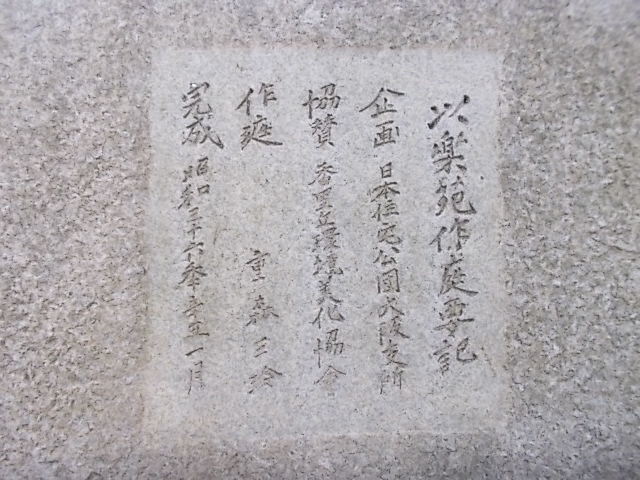 以楽苑作庭要記
企画 日本住宅公団大阪支所
協賛 香里丘環境美化協会
作庭 重森三玲
完成 昭和三十六年 一月